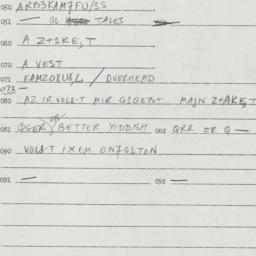 050 ARB3KAM7FU/3S
051 — G1 TALES
060 A Z+1KE,T
070 A VEST
071 KAMZO8U8,L / OVERHEAD
072 —
080 AZ IR VOL8-T MIR G1GEB+ MAJN Z+AKE,T
081 OR BETTER YIDDISH 082 QRR OR Q —
090 VOL8-T IXEM ON7G1TON
091 — 092 —